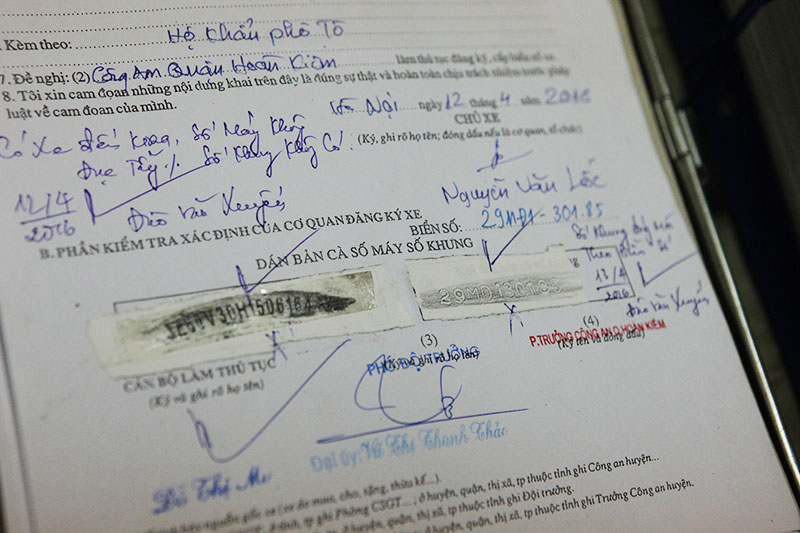 Kèm theo: Hộ khẩu phô tô
7. Đề nghị: (2) Công An Quận Hoàn Kiếm làm thủ tục đăng ký, cấp biển số xe
8. Tôi xin cam đoan những nội dung khai trên đây là đúng sự thật và hoàn toàn chịu trách nhiệm trước pháp
luật về cam đoan của mình.
Hà Nội ngày 12 tháng 4 năm 2016
CHỦ XE
(Ký, ghi rõ họ tên; đóng dấu nếu là cơ quan, tổ chức)
Có Xe đến kiểm, Số Máy không
Đục Tẩy Số Khung Không Có
12/4
2016
Đào Văn Xuyến
Nguyễn Văn Lốc
B. PHẦN KIỂM TRA XÁC ĐỊNH CỦA CƠ QUAN ĐĂNG KÝ XE
BIỂN SỐ: 29MĐ1 - 301.85
DÁN BẢN CÀ SỐ MÁY SỐ KHUNG
Số Khung đóng mới
Theo Biển Số
12/4
2016
Đào Văn Xuyến
29MD130185
CÁN BỘ LÀM THỦ TỤC
(Ký và ghi rõ họ tên)
(3)
PHÓ ĐỘI TRƯỞNG
(Ký và ghi rõ họ tên)
(4)
P.TRƯỞNG CÔNG AN Q.HOÀN KIẾM
(Ký tên và đóng dấu)
Đỗ Thị Mơ
Đại úy: Vũ Thị Thanh Thảo
(xe do mua, cho, tặng, thừa kế...).
ghi Phòng CSGT... ; ở huyện, quận, thị xã, tp thuộc tỉnh ghi Công an huyện...
ở huyện, quận, thị xã, tp thuộc tỉnh ghi Đội trưởng.
ở huyện, quận, thị xã, tp thuộc tỉnh ghi Trưởng Công an huyện.